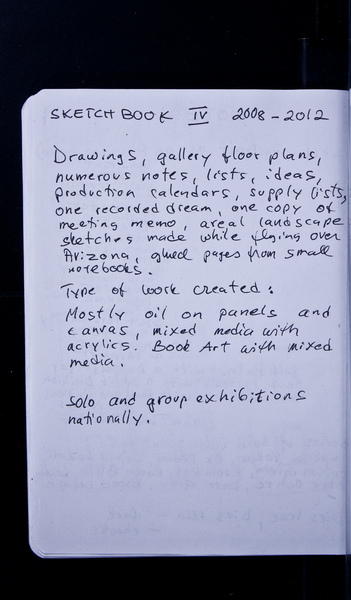 SKETCHBOOK IV 2008-2012
Drawings, gallery floor plans,
numerous notes, lists, ideas,
production calendars, supply lists,
one recorded dream, one copy of
meeting memo, areal landscape
sketches made while flying over
Arizona, glued pages from small
notebooks.
Type of work created:
Mostly oil on panels and
canvas, mixed media with
acrylics. Book Art with mixed
media.
Solo and group exhibitions
nationally.